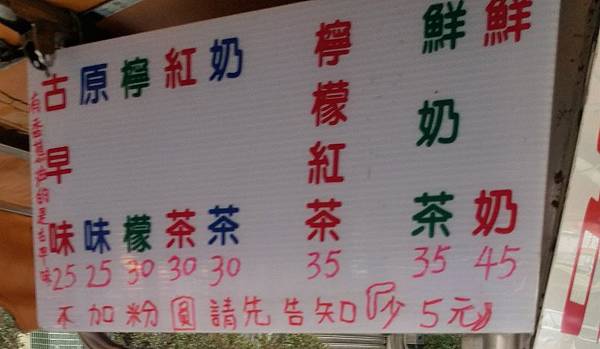 有香蕉油的是古早味
古早味 25
原味 25
檸檬 30
紅茶 30
奶茶 30
檸檬紅茶 35
鮮奶茶 35
鮮奶 45
不加粉圓請先告知『少5元』